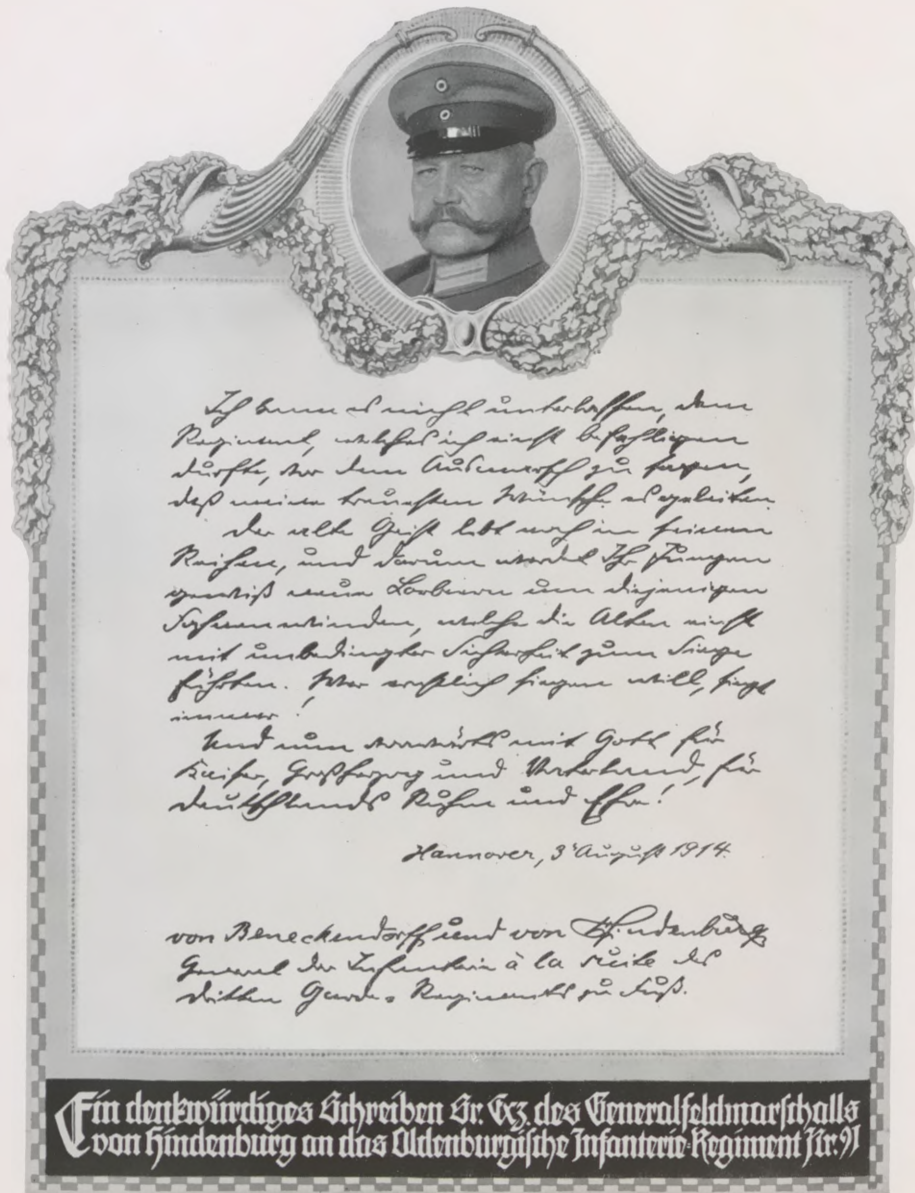 Ich kann es nicht unterlassen, dem
Regiment, welches ich einst befehligen
durfte, vor dem Ausmarsch zu sagen,
daß meine treuesten Wünsche es geleiten.
Der alte Geist lebt noch in seinen
Reihen, und darum werdet Ihr Jungen
gewiß neue Lorbeeren um diejenigen
Fahnen winden, welche die Alten einst
mit unbedingter Sicherheit zum Siege
führten. Wer ernstlich siegen will, siegt
immer!
Und nun vorwärts mit Gott für
Kaiser, Großherzog und Vaterland, für
Deutschlands Ruhm und Ehre!
Hannover, 3 August 1914.
von Beneckendorff und von Hindenburg
General der Infanterie à la suite des
dritten Garde-Regiments zu Fuß.
Ein denkwürdiges Schreiben Sr. Exz. des Generalfeldmarschalls
von Hindenburg an das Oldenburgische Infanterie-Regiment Nr. 91